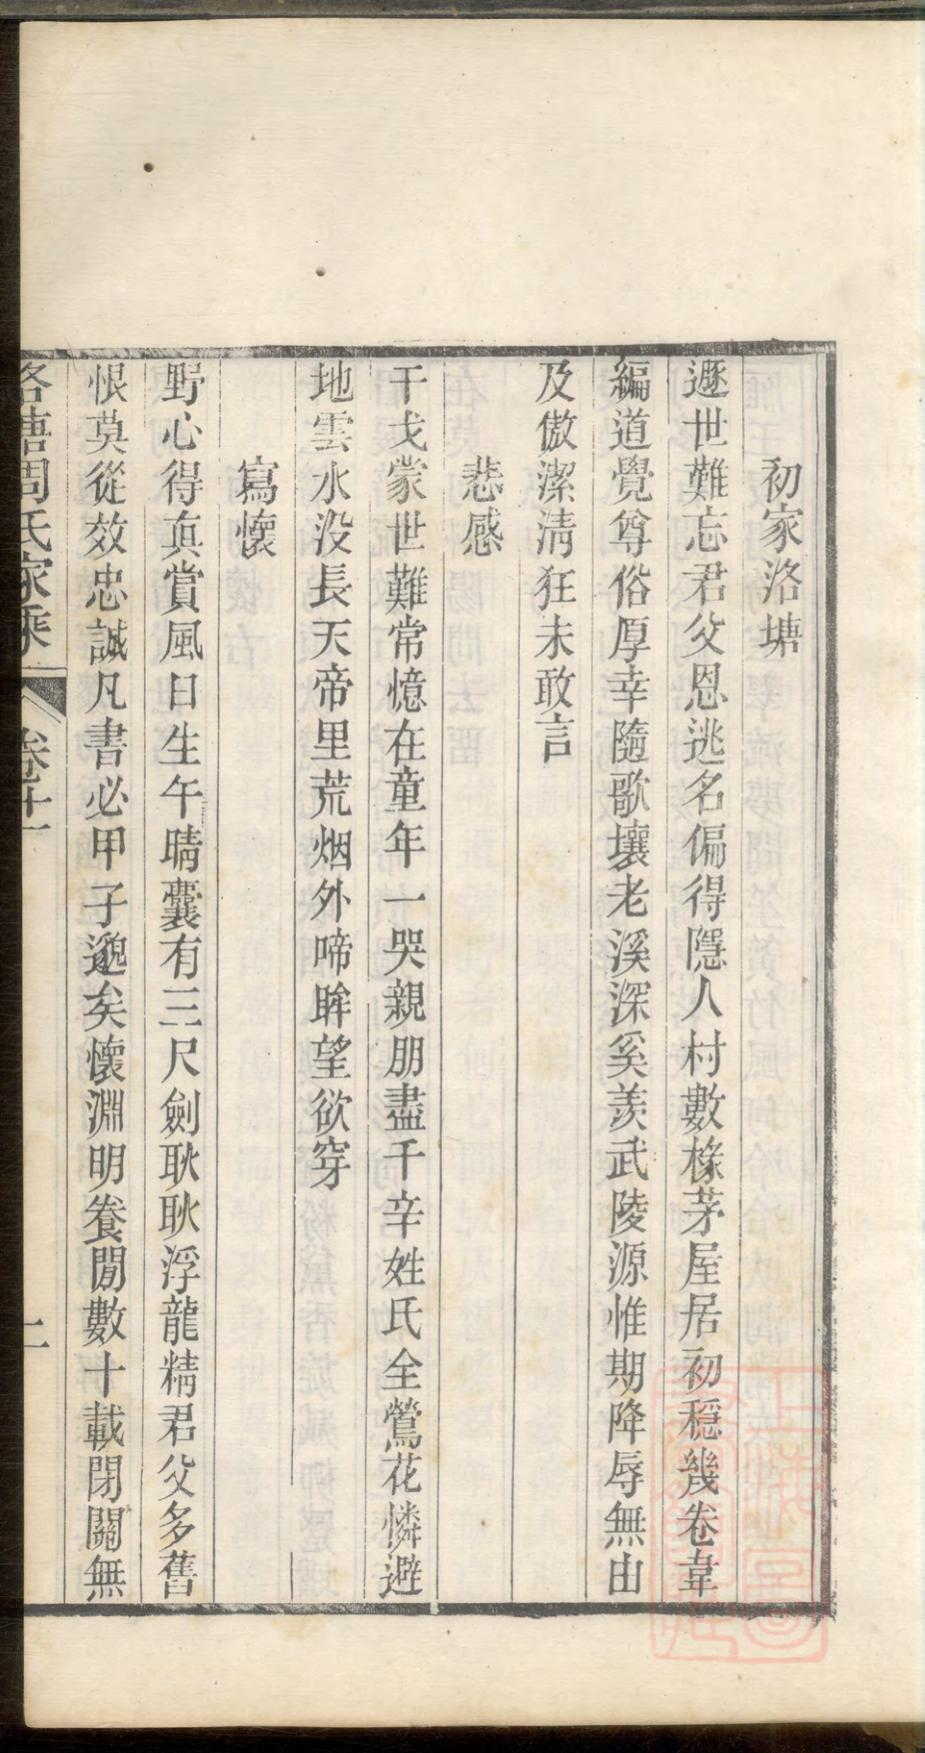 初家洛塘
遯世難忘君父恩逃名偏得隱人村數椽茅屋居初穏幾卷韋
編道覺尊俗厚幸隨歌壤老溪深奚羨武陵源惟期降辱無由
及傲潔淸狂未敢言
悲感
干戈蒙世難常憶在童年一哭親朋盡千辛姓氏全鶯花憐避
地雲水没長天帝里荒烟外啼眸望欲穿
寫懷
野心得眞賞風日生午晴囊有三尺劍耿耿浮龍精君父多舊
恨莫從效忠誠凡書必甲子邈矣懷淵明養閒數十載閉關無
洛塘周氏家乘 卷十一 二